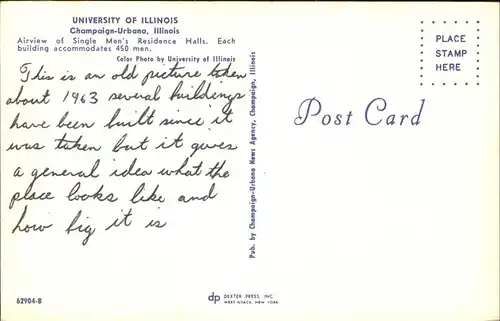 UNIVERSITY OF ILLINOIS
Champaign-Urbana, Illinois
Airview of Single Men's Residence Halls. Each
building accommodates 450 men.
Color Photo by University of Illinois
This is an old picture taken
about 1963 several buildings
have been built since it
was taken but it gives
a general idea what the
place looks like and
how big it is
62904-B
Pub. by Champaign-Urbana News Agency, Champaign, Illinois
PLACE
STAMP
HERE
Post Card
dp DEXTER PRESS, INC
WEST NYACK, NEW YORK